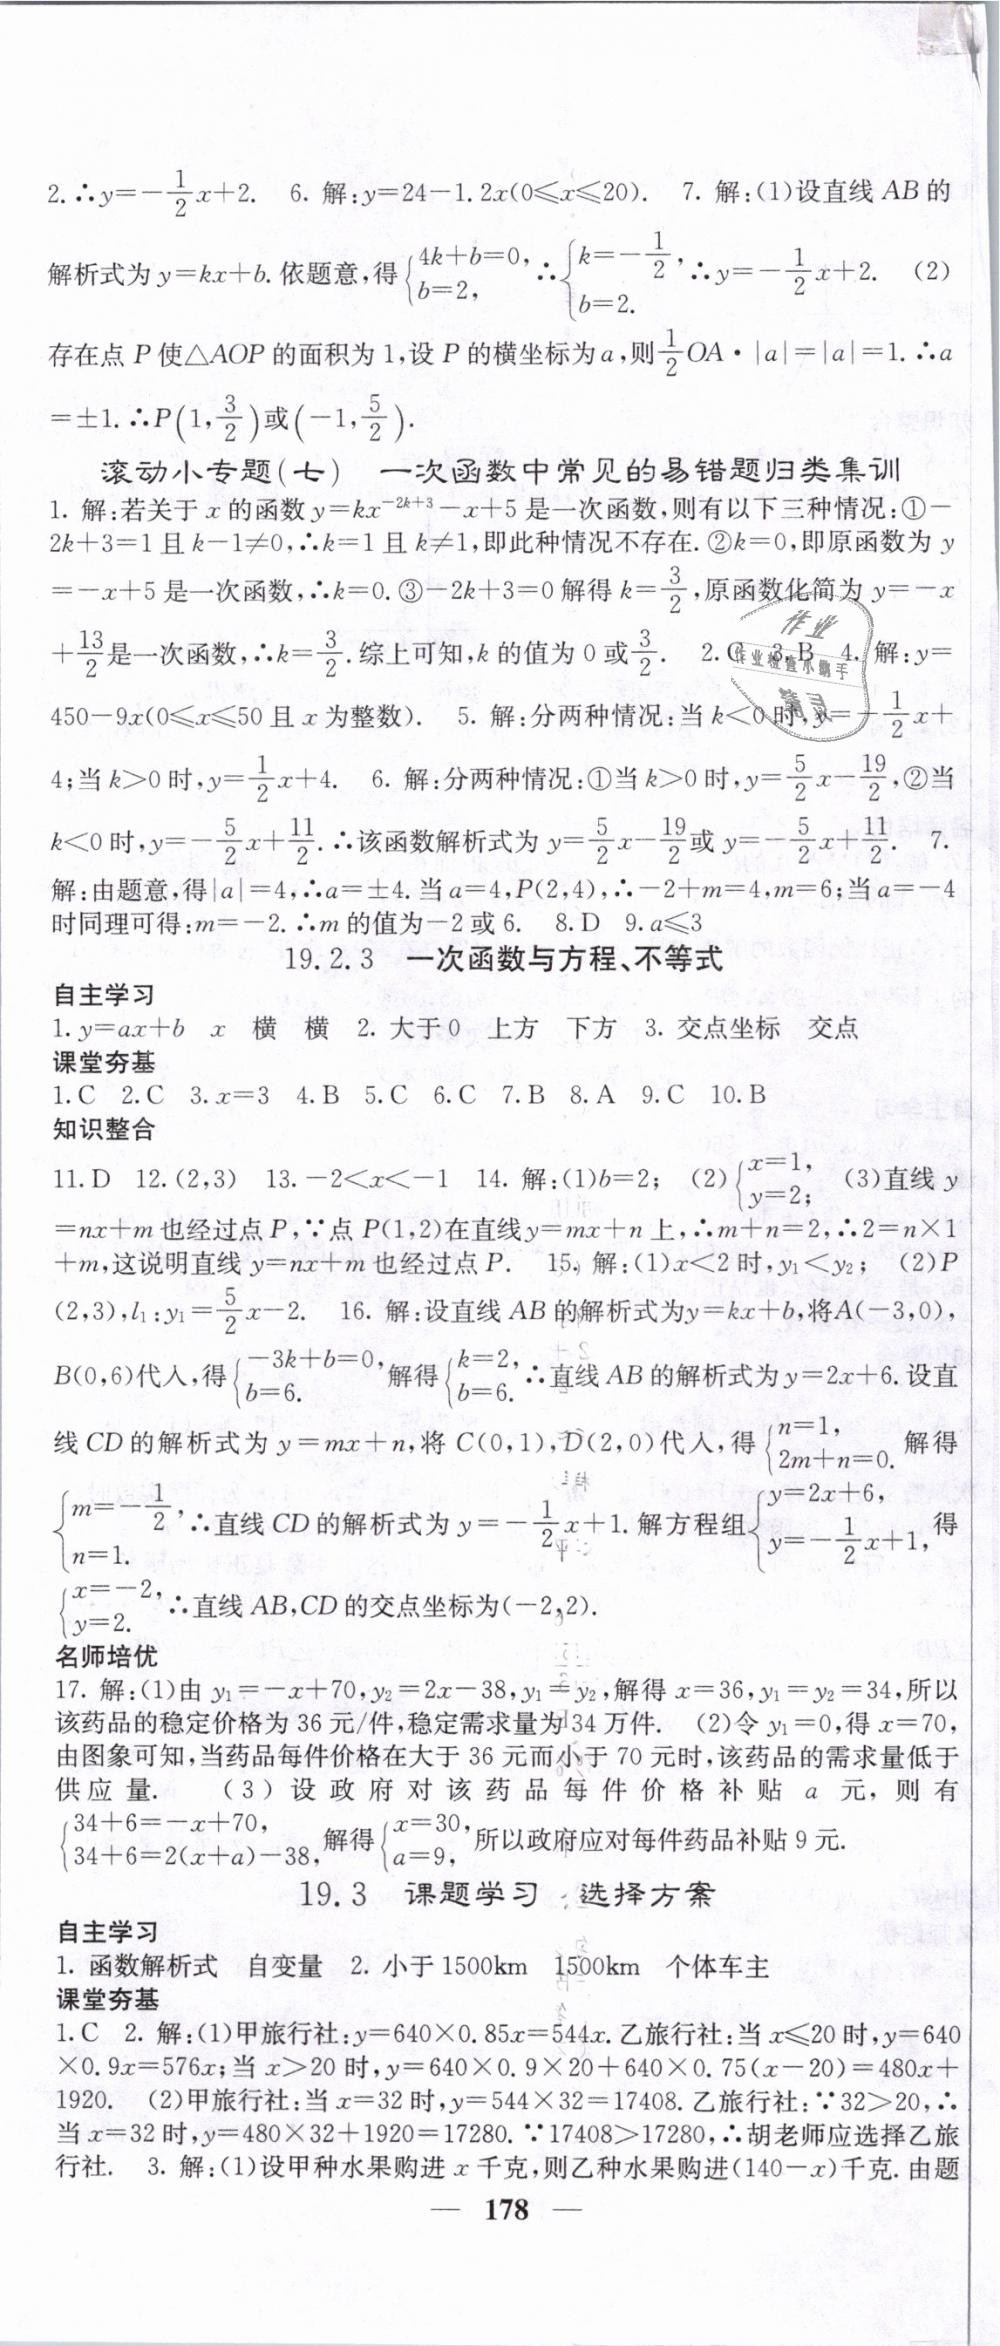 2.∴y=-1/2x+2. 6. 解:y=24-1.2x(0≤x≤20). 7. 解:(1)设直线 AB 的
解析式为 y=kx+b.依题意,得{4k+b=0, b=2, ∴{k=-1/2, b=2. ∴y=-1/2x+2. (2)
存在点 P 使△AOP 的面积为 1,设 P 的横坐标为 a,则1/2OA·|a|=|a|=1.∴a
=±1.∴P(1,3/2)或(-1,5/2).
滚动小专题(七) 一次函数中常见的易错题归类集训
1. 解:若关于 x 的函数 y=kx^{-2k+3}-x+5 是一次函数,则有以下三种情况:①-
2k+3=1 且 k-1≠0,∴k=1 且 k≠1,即此种情况不存在.②k=0,即原函数为 y
=-x+5 是一次函数,∴k=0.③-2k+3=0 解得 k=3/2,原函数化简为 y=-x
+13/2是一次函数,∴k=3/2.综上可知,k 的值为 0 或3/2. 2.C 3.B 4. 解:y=
450-9x(0≤x≤50 且 x 为整数). 5. 解:分两种情况:当 k<0 时,y=-1/2x+
4;当 k>0 时,y=1/2x+4. 6. 解:分两种情况:①当 k>0 时,y=5/2x-19/2,②当
k<0 时,y=-5/2x+11/2.∴该函数解析式为 y=5/2x-19/2或 y=-5/2x+11/2. 7.
解:由题意,得|a|=4,∴a=±4.当 a=4,P(2,4),∴-2+m=4,m=6;当 a=-4
时同理可得:m=-2.∴m 的值为-2 或 6. 8.D 9.a≤3
19.2.3 一次函数与方程、不等式
自主学习
1.y=ax+b x 横 横 2. 大于0 上方 下方 3. 交点坐标 交点
课堂夯基
1.C 2.C 3.x=3 4.B 5.C 6.C 7.B 8.A 9.C 10.B
知识整合
11.D 12.(2,3) 13.-2<x<-1 14. 解:(1)b=2; (2){x=1, y=2; (3)直线 y
=nx+m 也经过点 P,∵点 P(1,2)在直线 y=mx+n 上,∴m+n=2,∴2=n×1
+m,这说明直线 y=nx+m 也经过点 P. 15. 解:(1)x<2 时,y₁<y₂; (2)P
(2,3),l₁:y₁=5/2x-2. 16. 解:设直线 AB 的解析式为y=kx+b,将A(-3,0),
B(0,6)代入,得{-3k+b=0, b=6. 解得{k=2, b=6. ∴直线 AB 的解析式为 y=2x+6.设直
线 CD 的解析式为 y=mx+n,将 C(0,1),D(2,0)代入,得{n=1, 2m+n=0. 解得
{m=-1/2, n=1. ∴直线 CD 的解析式为 y=-1/2x+1.解方程组{y=2x+6, y=-1/2x+1, 得
{x=-2, y=2. ∴直线 AB,CD 的交点坐标为(-2,2).
名师培优
17. 解:(1)由 y₁=-x+70,y₂=2x-38,y₁=y₂,解得 x=36,y₁=y₂=34,所以
该药品的稳定价格为 36 元/件,稳定需求量为 34 万件. (2)令 y₁=0,得 x=70,
由图象可知,当药品每件价格在大于 36 元而小于 70 元时,该药品的需求量低于
供应量. (3)设政府对该药品每件价格补贴 a 元,则有
{34+6=-x+70, 34+6=2(x+a)-38, 解得{x=30, a=9, 所以政府应对每件药品补贴 9 元.
19.3 课题学习 选择方案
自主学习
1. 函数解析式 自变量 2. 小于 1500km 1500km 个体车主
课堂夯基
1.C 2. 解:(1)甲旅行社:y=640×0.85x=544x.乙旅行社:当 x≤20 时,y=640
×0.9x=576x;当 x>20 时,y=640×0.9×20+640×0.75(x-20)=480x+
1920. (2)甲旅行社:当 x=32 时,y=544×32=17408.乙旅行社:∵32>20,∴
当 x=32 时,y=480×32+1920=17280.∵17408>17280,∴胡老师应选择乙旅
行社. 3. 解:(1)设甲种水果购进 x 千克,则乙种水果购进(140-x)千克.由题
— 178 —
作业
作业检查小帮手
精灵